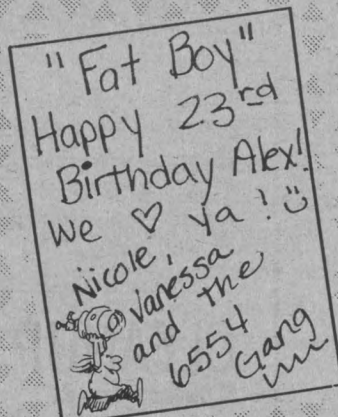 "Fat Boy"
Happy 23rd
Birthday Alex!
We ♡ ya! ☺
Nicole,
Vanessa
and the
6554
Gang